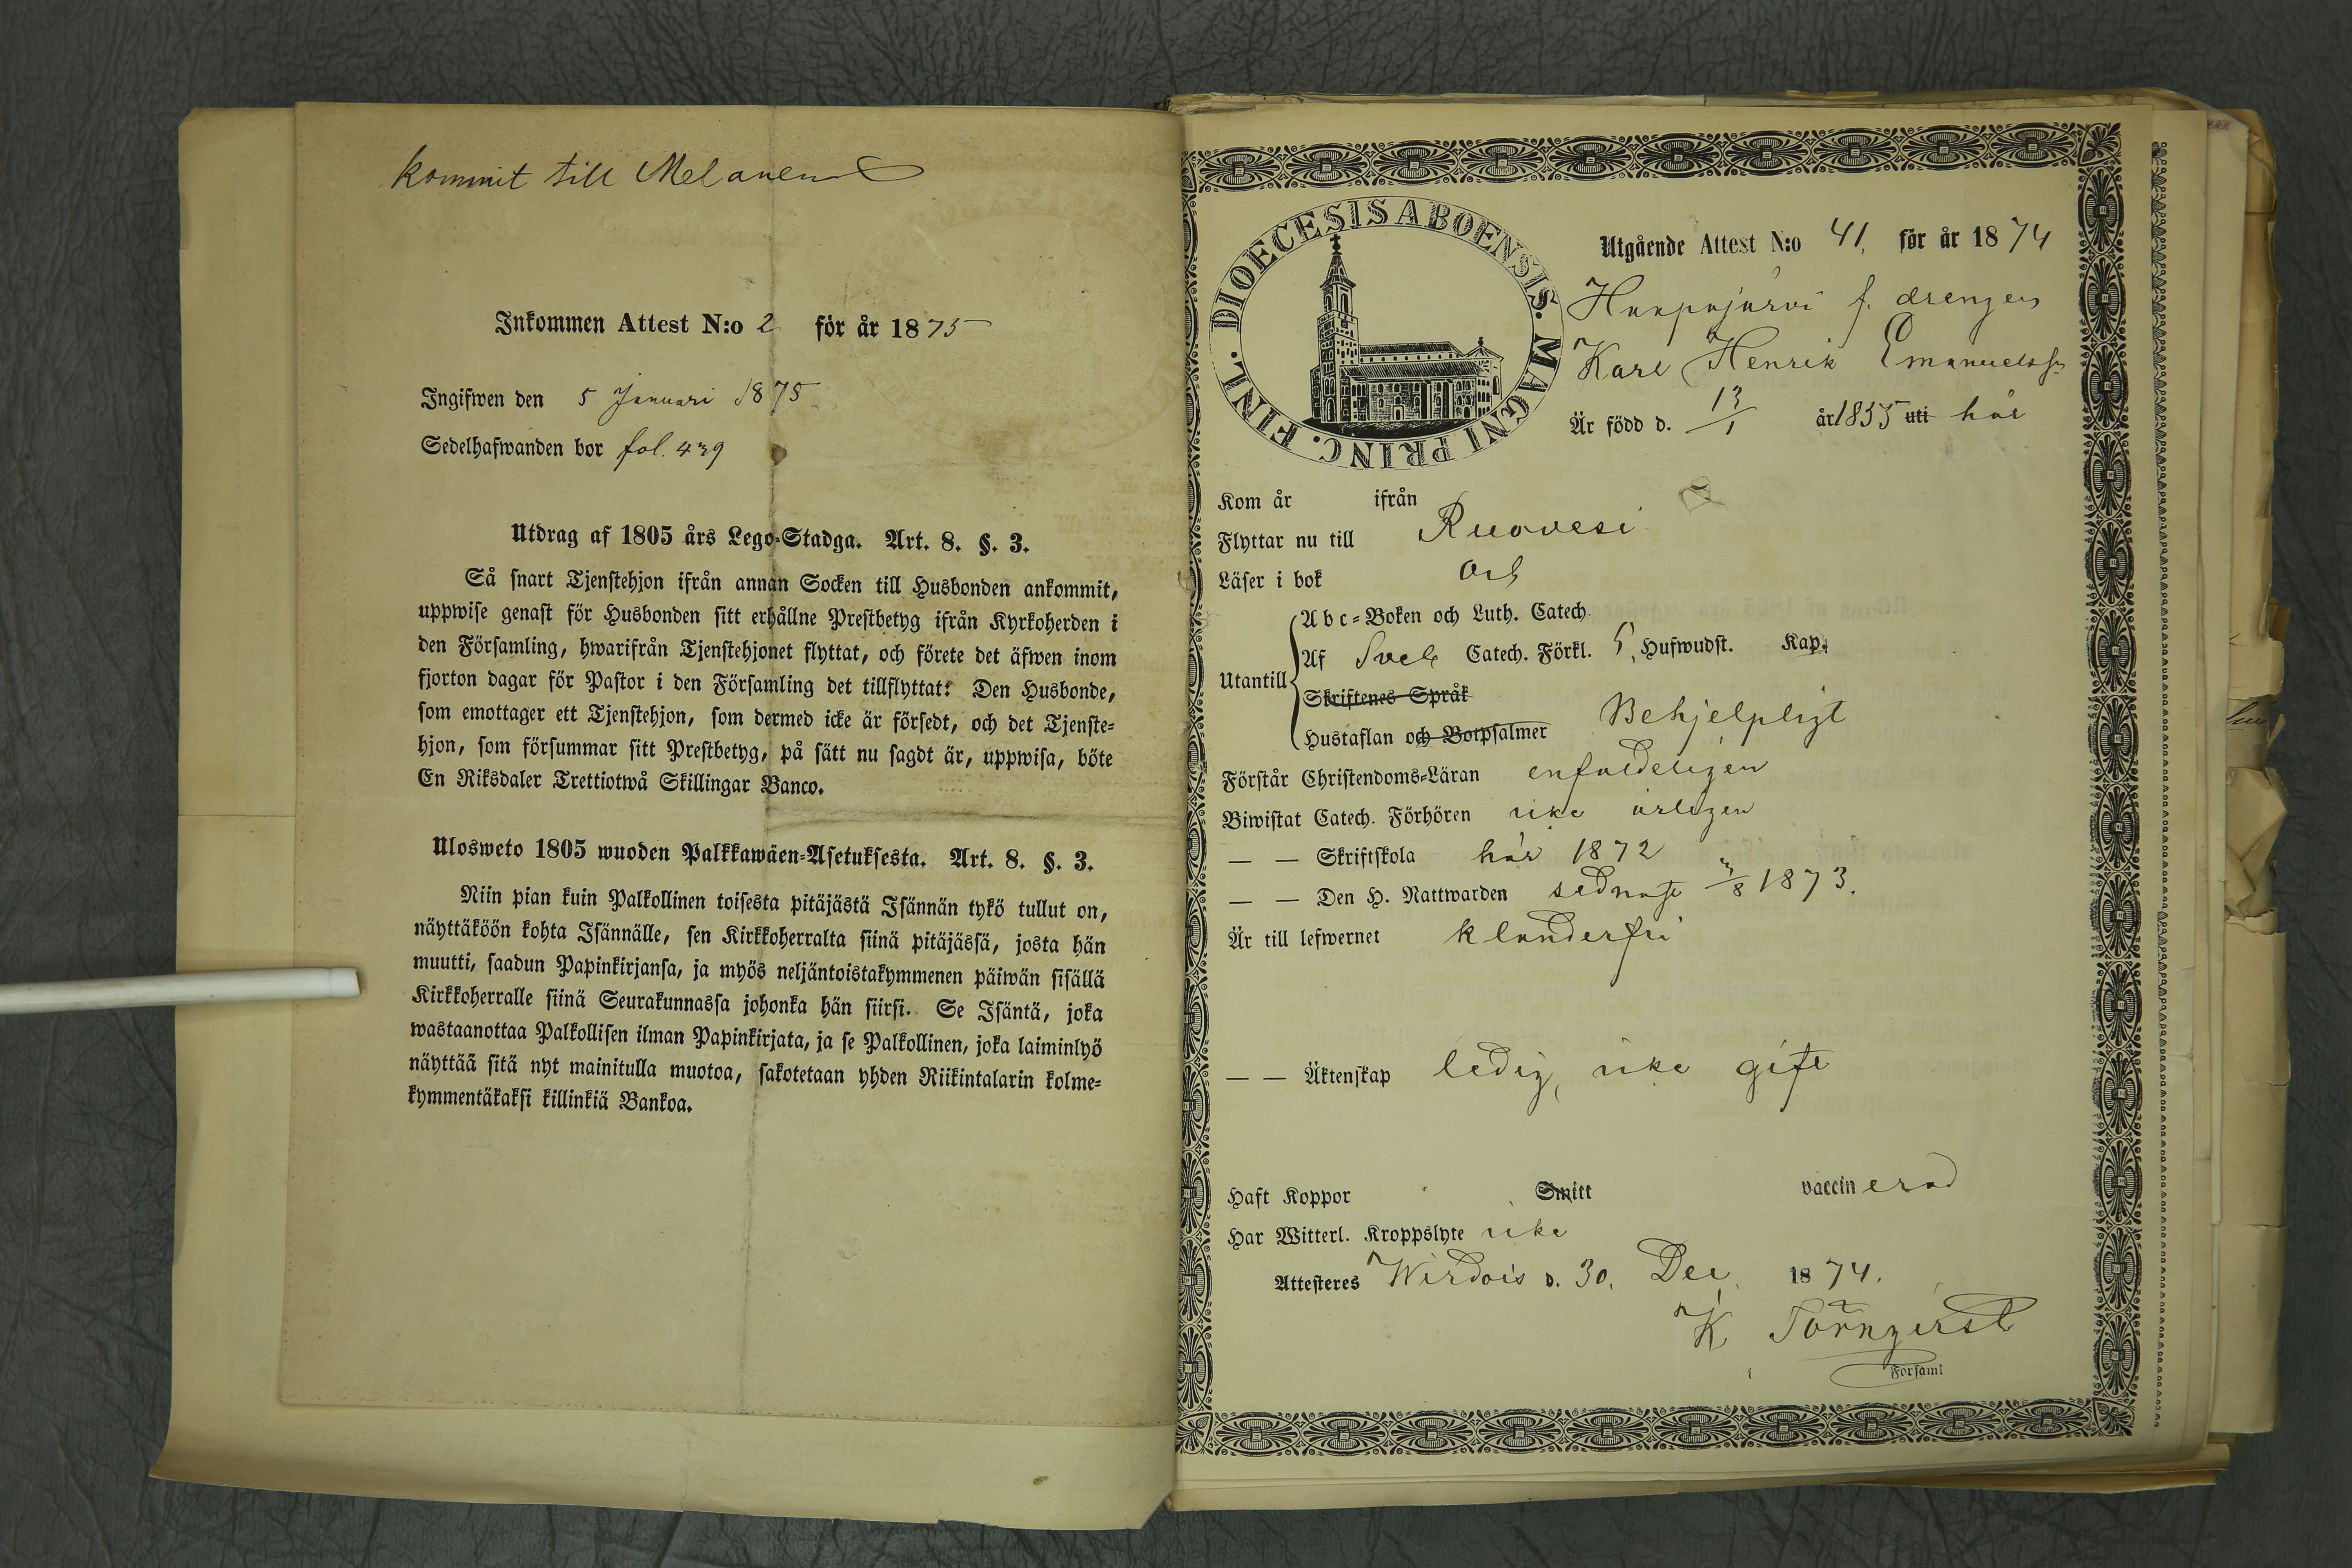 kommit till Melanen
Inkommen Attest N:o 2 för år 1875
Ingifwen den 5 Januari 1875
Sedelhafwanden bor fol. 439
Utdrag af 1805 års Lego-Stadga. Art. 8. §. 3.
Så snart Tjenstehjon ifrån annan Socken till Husbonden ankommit,
uppwise genast för Husbonden sitt erhållne Prestbetyg ifrån Kyrkoherden i
den Församling, hwarifrån Tjenstehjonet flyttat, och förete det äfwen inom
fjorton dagar för Pastor i den Församling det tillflyttat: Den Husbonde,
som emottager ett Tjenstehjon, som dermed icke är försedt, och det Tjenste-
hjon, som försummar sitt Prestbetyg, på sätt nu sagdt är, uppwisa, böte
En Riksdaler Trettiotwå Skillingar Banco.
Ulosweto 1805 wuoden Palkkawäen-Asetuksesta. Art. 8. §. 3.
Niin pian kuin Palkollinen toisesta pitäjästä Isännän tykö tullut on,
näyttäköön kohta Isännälle, sen Kirkkoherralta siinä pitäjässä, josta hän
muutti, saadun Papinkirjansa, ja myös neljäntoistakymmenen päiwän sisällä
Kirkkoherralle siinä Seurakunnassa johonka hän siirsi. Se Isäntä, joka
wastaanottaa Palkollisen ilman Papinkirjata, ja se Palkollinen, joka laiminlyö
näyttää sitä nyt mainitulla muotoa, sakotetaan yhden Riikintalarin kolme-
kymmentäkaksi killinkiä Bankoa.
DIOECESIS ABOENSIS. MAGNI PRINC. FINL.
Utgående Attest N:o 41, för år 1874
f. drengen
Karl Henrik Emanuelss:n
Är född d. 13/1 år 1855 uti här
Kom år ifrån
Flyttar nu till Ruovesi
Läser i bok
Utantill
Abc-Boken och Luth. Catech.
Af Sveb Catech. Förkl. 5, Hufwudst. Kap.
Skriftenes Språk
Hustaflan och Botpsalmer Behjelpligt
Förstår Christendoms-Läran enfaldeligen
Biwistat Catech. Förhören icke årligen
— — Skriftskola här 1872
— — Den H. Nattwarden sednast /8 1873.
Är till lefwernet klanderfri
— — Äktenskap ledig, icke gift
Haft Koppor Smitt vaccinerad
Har Witterl. Kroppslyte icke
Attesteres Wirdois d. 30. Dec. 1874.
K Törnqvist
i Församl